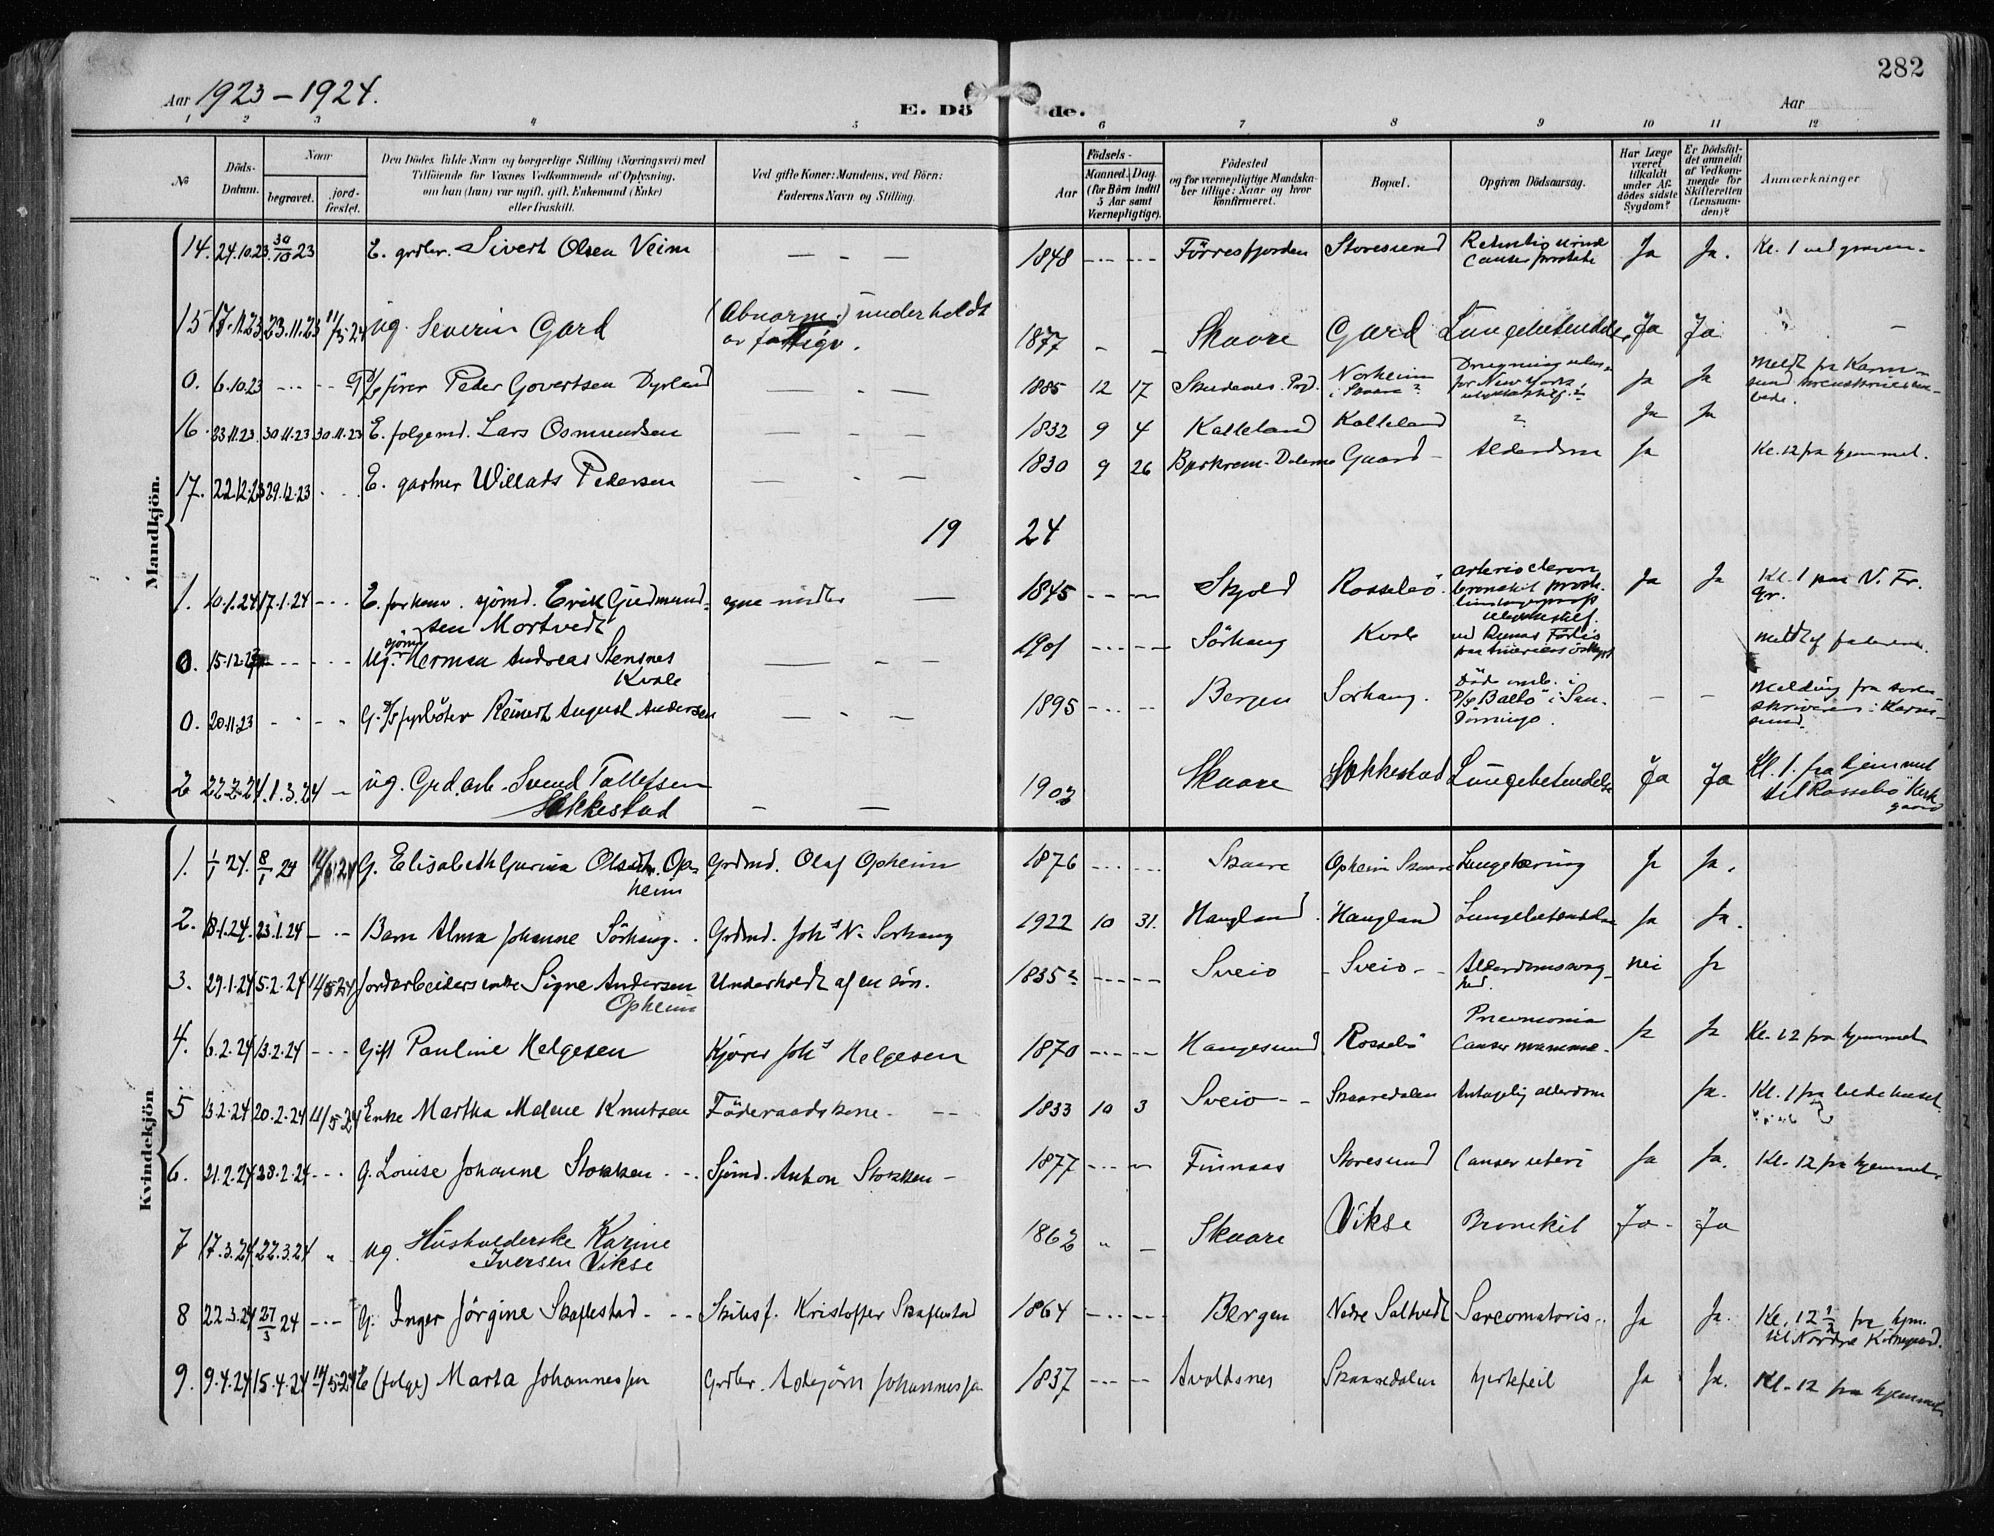 282
Aar 1923 – 1924.
E. Dö de.
Aar
1 2 3 4 5 6 7 8 9 10 11 12
No
Döds-Datum.
Naar
begravet.
jord-fæstet.
Den Dödes fulde Navn og borgerlige Stilling (Næringsvei) med
Tilföiende for Voxnes Vedkommende af Oplysning,
om han (hun) var ugift, gift, Enkemand (Enke)
eller fraskilt.
Ved gifte Koner: Mandens, ved Börn:
Faderens Navn og Stilling.
Födsels-
Aar
Maaned. Dag.
(for Börn indtil
5 Aar samt
Værnepligtige).
Födested
og for værnepligtige Mandska-
ber tillige: Naar og hvor
konfirmeret.
Bopæl.
Opgiven Dödsaarsag.
Har Læge
været
tilkaldt
under Af-
dödes sidste
Sygdom?
Er Dödsfal-
det anmeldt
af Vedkom-
mende for
Skifteretten
(Lensman-
den)?
Anmærkninger
Mandkjön.
14. 24.10.23 30/10 23 E. grdbr. Sivert Olsen Veim — - — 1848 Förresfjorden Storesund Ja Ja. Kl. 1 ved graven.
15 17.11.23 23.11.23 11/5 24 ug. Severin Gard (Abnorm.) underholdt
av fattigv. 1877 Skaare Gard Lungebetendelse Ja Ja
0. 6.10.23 G. Peder Govertsen Dyrland 1885 12 17 Skudenes Norheim
i Skaare? for New York, Ja Ja Meldt fra Karm-
sund
16. 23.11.23 30.11.23 30.11.23 E. folgemd. Lars Osmundsen 1832 9 4 Kalleland Kalleland ? Ja Ja
17. 22.12.23 29.12.23 E. gartner Willads Pedersen 1830 9 26 Gaard Alderdom Ja Kl. 12 fra hjemmet.
19 24
1. 10.1.24 17.1.24 E. forhenv. sjömd. Erik Gudmund-
sen Mortvedt egne midler 1845 Skjold Rossebö Ja Ja Kl. 1 paa N. Fr.
gr.
0. 15.12.23 Ug. sjömd Herman Andreas Stensnes
Kvale 1901 Sörhaug Kvale ved Runas Forlis meldt af faderen.
0. 20.11.23 G. fyrböter Reinert August Andersen 1895 Bergen Sorhaug. Död omb. i
D/S "Balto" i San-
Domingo. — — Melding fra soren-
skriveren i Karm-
sund.
2 22.2.24 1.3.24 ug. Grd.arb. Svend Tollefsen
Stakkestad 1902 Skaare Stakkestad Lungebetendelse Ja Ja Kl. 1. fra hjemmet
til Rossebö Kirke
gaard
Kvindekjön
1. 1/1 24. 8/1 24 G. Elisabeth Gurina Olsen Op-
heim Grdmd. Olaf Opheim 1876 Skaare Opheim Skaare Lungetæring Ja Ja.
2. 18.1.24. 23.1.24 Barn Alma Johanne Sörhaug. Grdmd. Johs N. Sorhaug 1922 10 31. Haugland Haugland Lungebetendelse Ja Ja.
3. 29.1.24 5.2.24 11/5 24 Jordarbeiders enke Signe Andersen
Opheim Underholdt af en sön. 1835? Sveio Sveio Alderdomssvag-
hed. nei Ja
4. 6.2.24 13.2.24 Gift Pauline Helgesen Kjörer Johs Helgesen 1870 Haugesund Rossebö Pneumonia
Canser mammae Ja Ja Kl. 12 fra hjemmet
5 13.2.24 20.2.24 11/5 24 Enke Martha Malene Knutsen Föderaadskone 1833 10 3 Sveio Skaaredalen Antagelig alderdom Ja. Kl. 1 fra bedehuset
6. 21.2.24 28.2.24 G. Louise Johanne Stokken Sjömd. Anton Stokken 1877 Finnaas Storesund Canser uteri Ja Ja. Kl. 12 fra hjemmet
7 17.3.24 22.3.24 " ug. Husholderske Karine
Iversen Vikse 1862 Skaare Vikse Bronckit Ja Ja
8 22.3.24 27/3 24 G. Inger Jörgine Skaflestad Skibsf. Kristoffer Skaflestad 1864 Bergen Nedre Saltvedt Sarcomatoris Ja Ja. Kl. 12 1/2 fra hjm.
til Nordre Kirkegaard.
9. 9.4.24 15.4.24 11/5 24 E (folge) Marta Johannessen Grdbr. Asbjörn Johannessen 1837 Avaldsnes Skaaredalen hjertefeil Ja Ja. Kl. 12 fra hjemmet